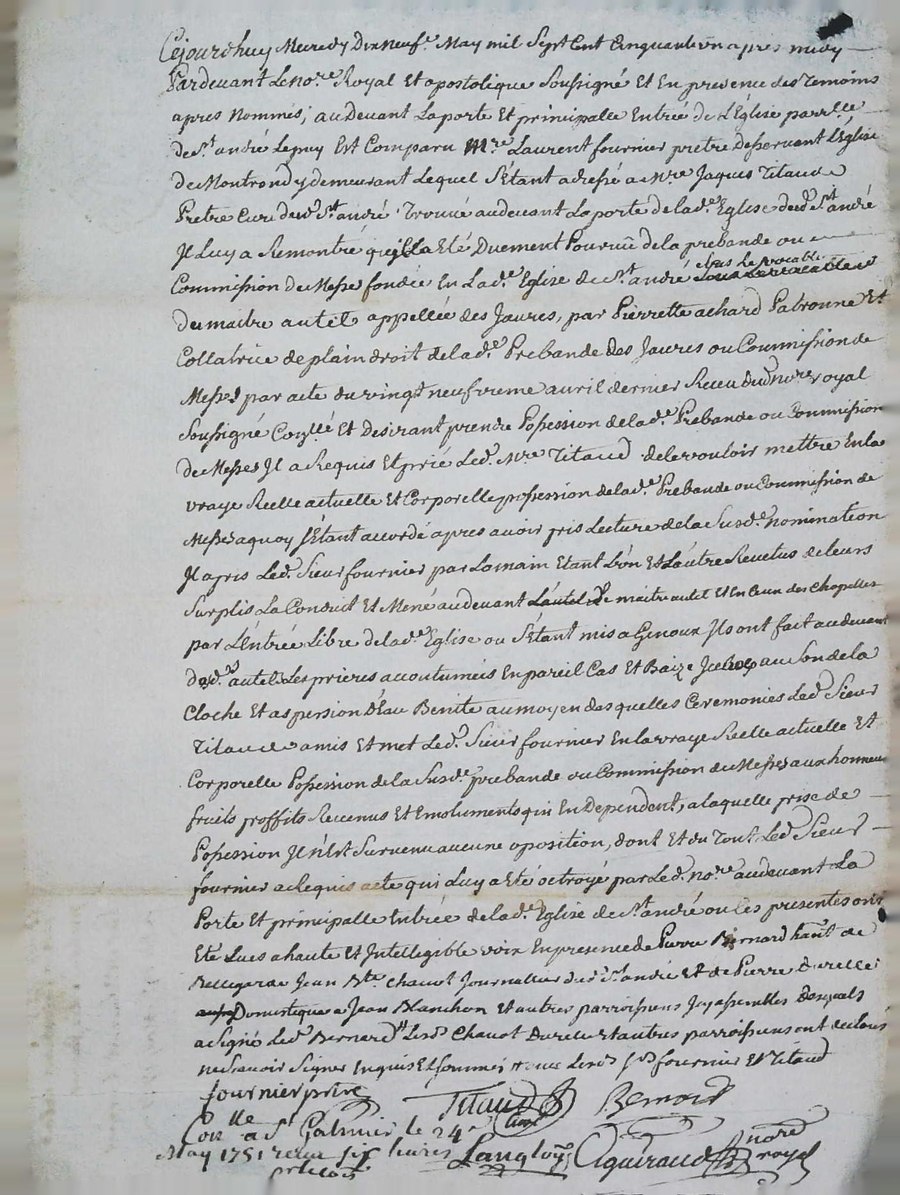 Cejourdhuy Mercredy Dixneufe. May mil Sept Cent Cinquante un apres midy
Pardevant Le nore. Royal Et apostolique Soussigné Et En presence des Temoins
apres Nommés, au Devant La porte Et principalle Entrée de L'Eglise parrlle.
de St. andré Lepuy Est Comparu Mre. Laurent fournier pretre Desservant L'Eglise
de Montrond y demeurant Lequel S'Etant adressé a Mre Jaques Titaud
Pretre Curé dud. St. andré Trouvé audevant La porte de lade. Eglise dud. St. andré
Il Luy a Remontré qu'il a Eté Duement Pourvu de la prebande ou
Commission de Messes fondée En Lade. Eglise de St. andré Sous Le vocable
du maitre autel appellée des Jaures, par Pierrette achard Patronne Et
Collatrice de plain droit de lade. Prebande des Jaures ou Commission de
Messes par acte du vingt neufvieme avril dernier Receu dud. nore. royal
Soussigné Conllé Et Desirant prendre Possession de lade. Prebande ou Commission
de Messes Il a Requis Et prié Led. Mre Titaud de le vouloir mettre En la
vraye Réelle actuelle Et Corporelle possession de lade. Prebande ou Commission de
Messes aquoy S'Etant accordé apres avoir pris Lecture de la Susde. nomination
Il a pris Led. Sieur fournier par La main Etant L'un Et L'autre Revetus de leurs
Surplis La Conduit Et Mené au devant L'autel maitre autel Et En Ceux des Chapelles
par L'Entrée Libre de lade. Eglise ou S'Etant mis a Genoux Ils ont fait au devant
desd. autels Les prieres accoutumeés En pareil Cas Et Baizé Iceluy au Son de la
Cloche Et aspersion D'Eau Benite au moyen des quelles Ceremonies Led. Sieur
Titaud a mis Et met Led. Sieur fournier En la vraye Réelle actuelle Et
Corporelle Possession de la Susde. prebande ou Commission de Messes aux honneurs
fruits proffits Revenus Et Emoluments qui En Dependent, a laquelle prise de
Possession Il n'Est Survenu aucune oposition, dont Et du Tout Led. Sieur
fournier a Requis acte qui Luy a Eté octroyé par Led. nore. au devant La
Porte Et principalle Entrée de lade. Eglise de St. andré ou les presentes ont
Eté Lues a haute Et Intellegible voix En presence de Pierre Bernard hant. de
Bellegarde Jean Bte. Chavot Journallier dud. St. andré Et de Pierre Durelle
Domestique a Jean Blanchon Et autres parroissiens Icy assemblés Desquels
a Signé Led. Bernard Et Lesd. Chavot Durelle Et autres parroissiens ont declaré
ne Scavoir Signer Enquis Et Sommés avec Lesd. Srs fournier Et Titaud
fournier ptre Titaud Curé Bernard
Conlle a St Galmier le 24e
May 1751 receu six livres Langloys Aguiraud nore royal